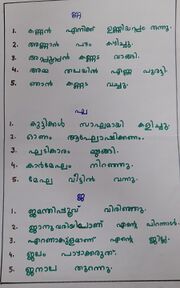 ണ്ണ
1. കണ്ണൻ എനിക്ക് ഉണ്ണിയപ്പം തന്നു.
2. അണ്ണാൻ പഴം കടിച്ചു.
3. അപ്പൂപ്പൻ കണ്ണട വാങ്ങി.
4. അമ്മ തലയിൽ എണ്ണ പുരട്ടി.
5. ഞാൻ കണ്ണട വച്ചു.
ഘ
1. കുട്ടികൾ സംഘമായി കളിച്ചു.
2. ഓണം ആഘോഷിക്കണം.
3. ഘടികാരം
4. കാർമേഘം നിറഞ്ഞു.
5. മേഘ വീട്ടിൽ വന്നു.
ജ
1. ജമന്തിപ്പൂവ് വിരിഞ്ഞു.
2. ജനുവരിയിലാണ് എന്റെ പിറന്നാൾ.
3. എറണാകുളമാണ് എന്റെ ജില്ല.
4. ജലം പാഴാക്കരുത്.
5. ജനാല തുറന്നു.